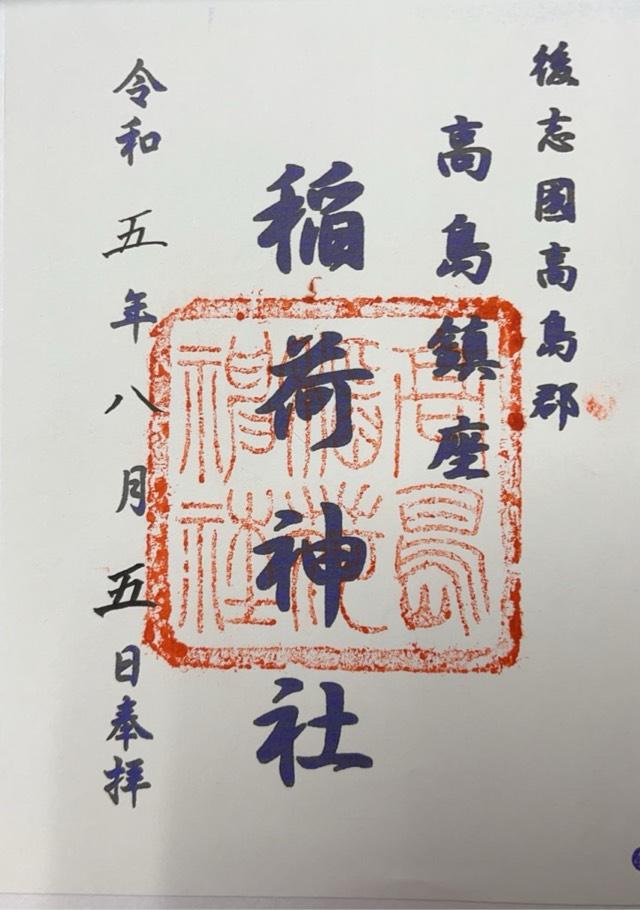 後志國高島郡
高島鎮座
稲荷神社
令和五年八月五日奉拝
高島
稲荷
神社